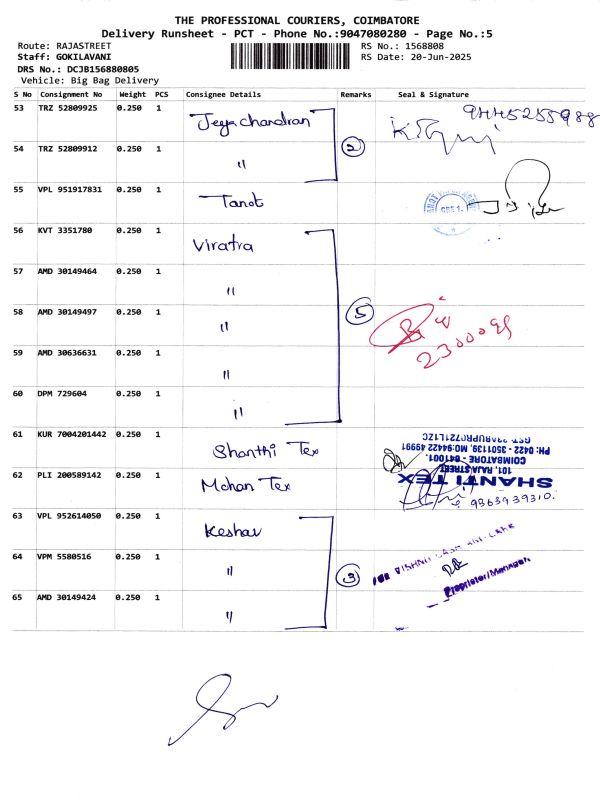 THE PROFESSIONAL COURIERS, COIMBATORE
Delivery Runsheet - PCT - Phone No.:9047080280 - Page No.:5
Route: RAJASTREET RS No.: 1568808
Staff: GOKILAVANI RS Date: 20-Jun-2025
DRS No.: DCJB156880805
Vehicle: Big Bag Delivery
S No Consignment No Weight PCS Consignee Details Remarks Seal & Signature
53 TRZ 52809925 0.250 1 Jeyachandran
54 TRZ 52809912 0.250 1 " 2
55 VPL 951917831 0.250 1 Tanot
56 KVT 3351780 0.250 1 Viratra
57 AMD 30149464 0.250 1 "
58 AMD 30149497 0.250 1 " 5
59 AMD 30636631 0.250 1 "
60 DPM 729604 0.250 1 "
61 KUR 7004201442 0.250 1 Shanthi Tex
PH: 0422 - 3501139, MO:94422 49991
COIMBATORE - 641001.
101, RAJA STREET
62 PLI 200589142 0.250 1 Mohan Tex SHANTI TEX
9363939310.
63 VPL 952614050 0.250 1 Keshav
64 VPM 5580516 0.250 1 " 3
Proprietor/Manager
65 AMD 30149424 0.250 1 "